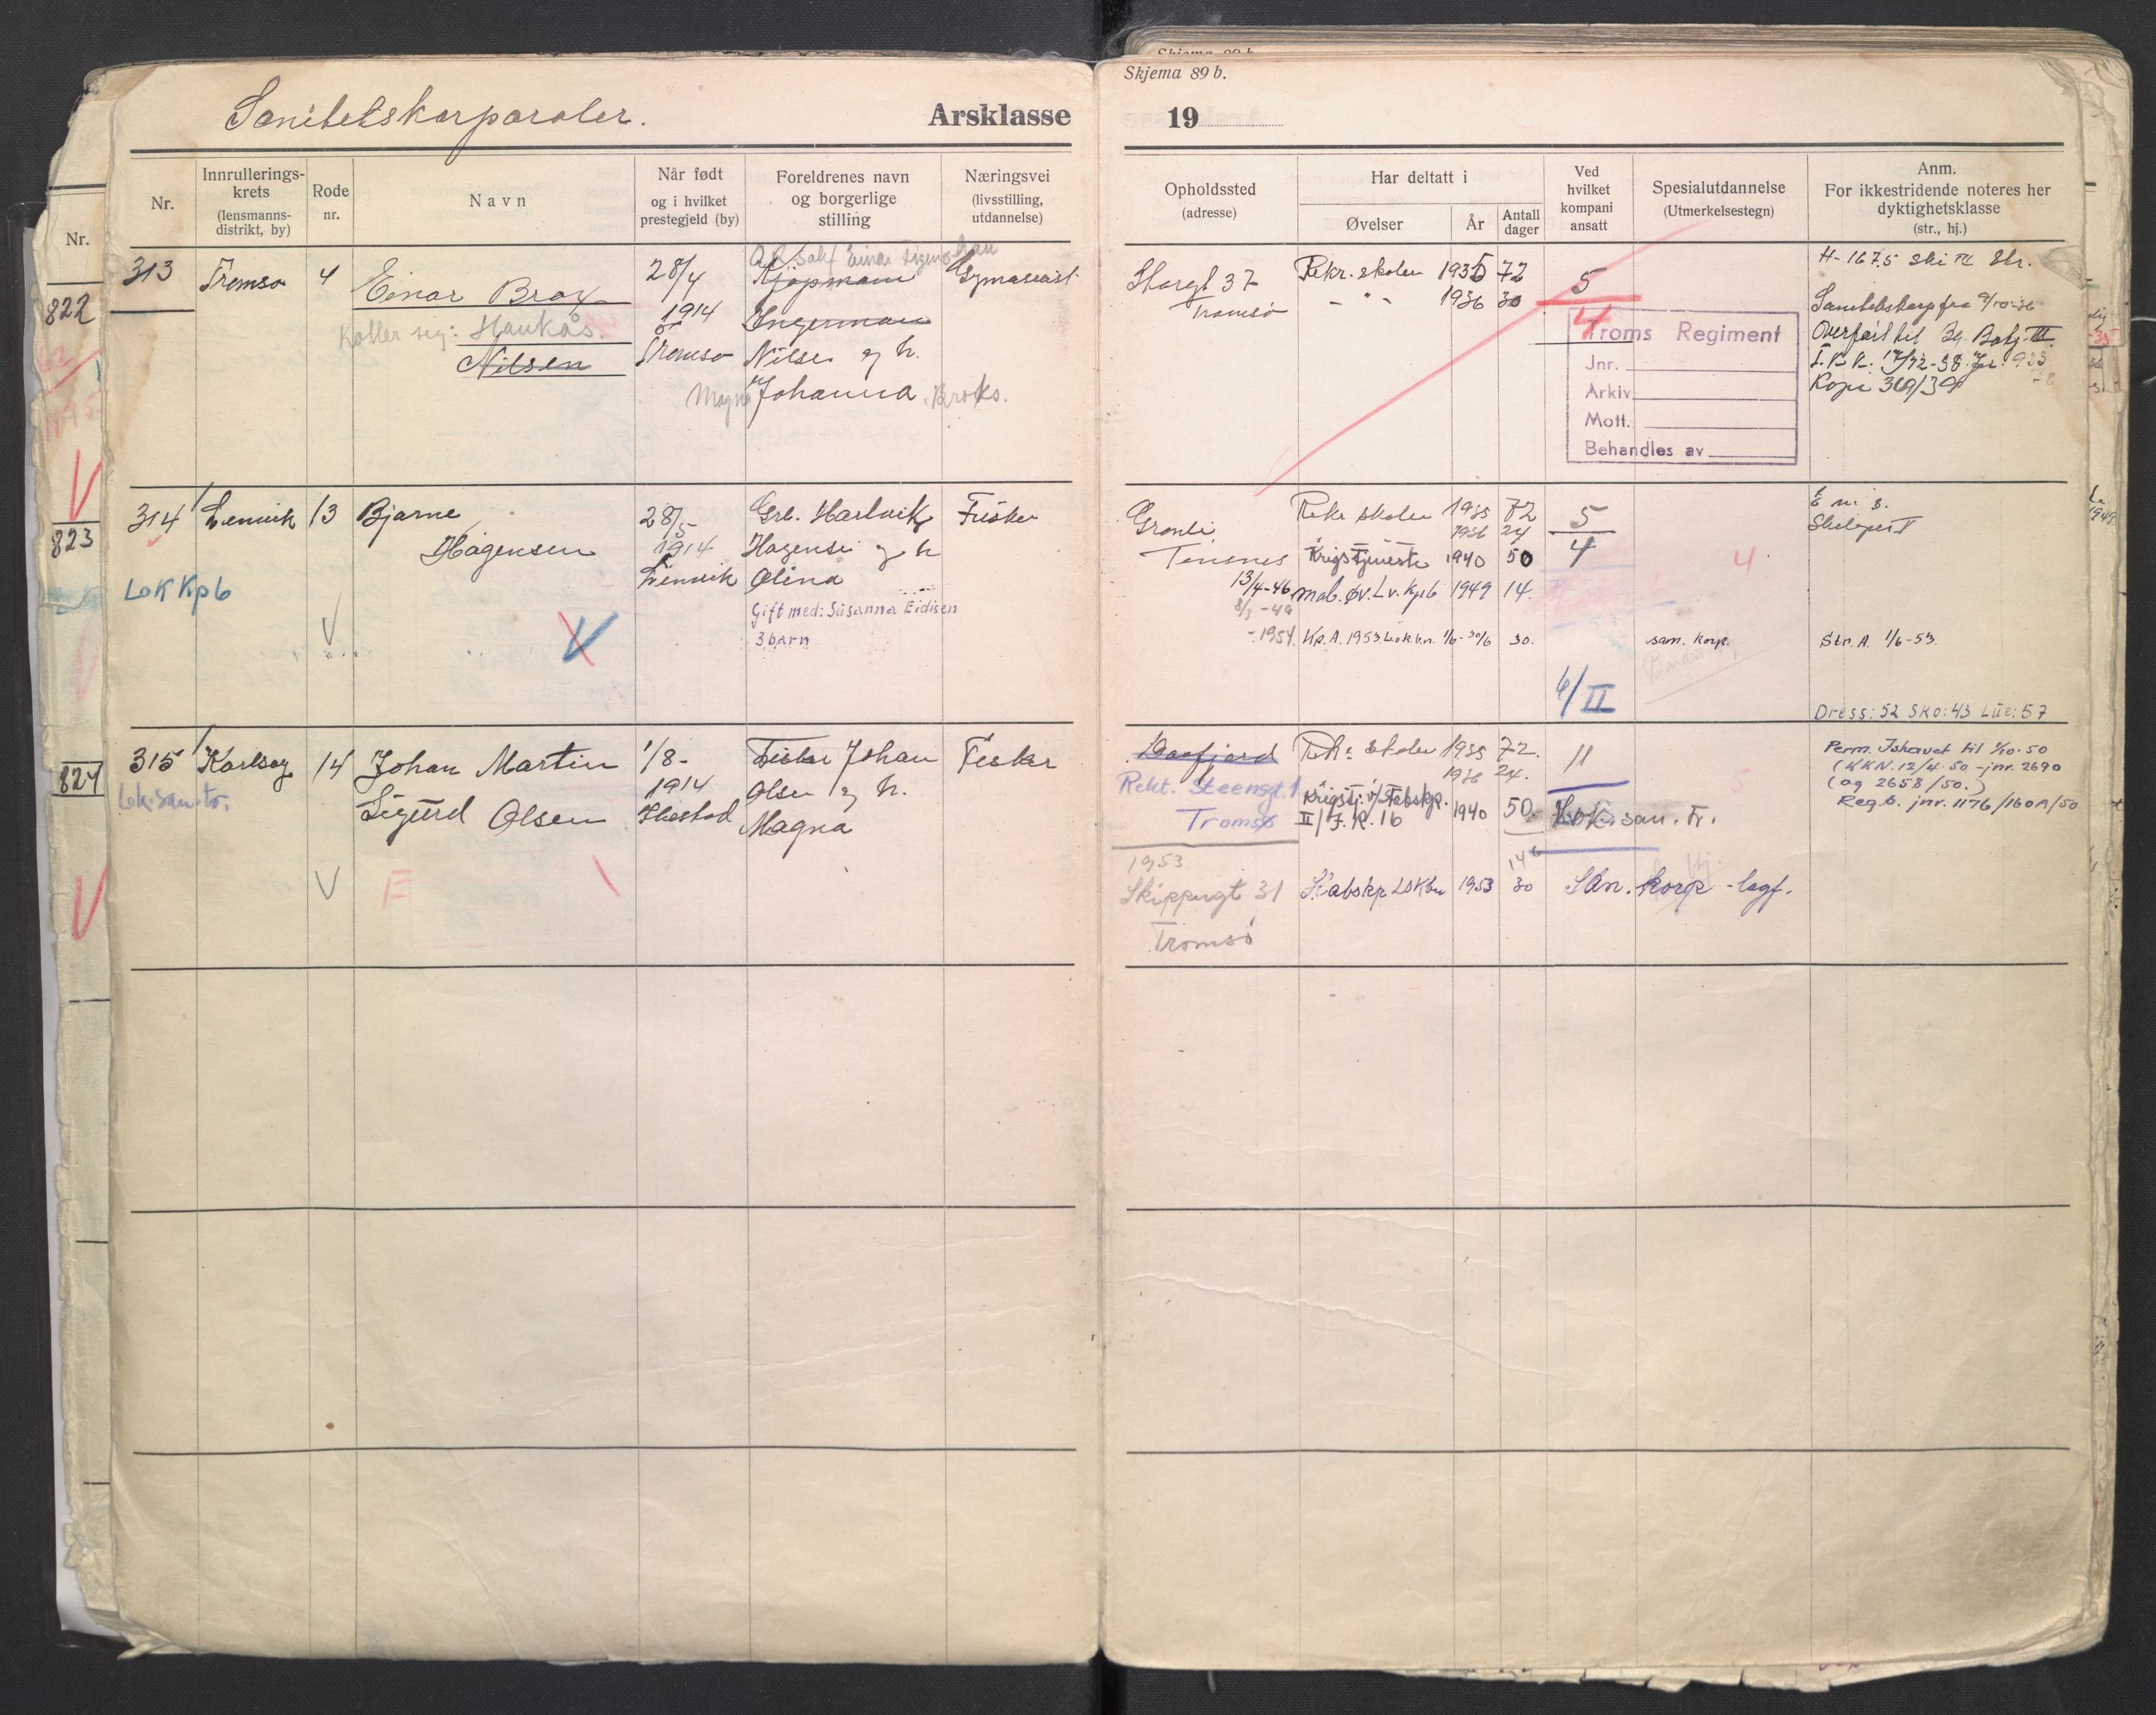 Skjema 89 b.
Sanitetskorporaler.
Årsklasse
19
Nr.
Innrullerings-
krets
(lensmanns-
distrikt, by)
Rode
nr.
Navn
Når født
og i hvilket
prestegjeld (by)
Foreldrenes navn
og borgerlige
stilling
Næringsvei
(livsstilling,
utdannelse)
Opholdssted
(adresse)
Har deltatt i
Øvelser
År
Antall
dager
Ved
hvilket
kompani
ansatt
Spesialutdannelse
(Utmerkelsestegn)
Anm.
For ikkestridende noteres her
dyktighetsklasse
(str., hj.)
Nr.
822
823
824
313
Tromsø
4
Einar Brox
Kaller sig: Haukås.
Nilsen
28/4
1914
Tromsø
Kjøpmann
Ingerman
Nilsen og h.
Magna Johanna Broks.
Gymnasiast
Storgt 37
Tromsø
Rekr. skolen 1935 72
- " - 1936 30
5
4
Troms Regiment
Jnr.
Arkiv
Mott.
Behandles av
H-167.5 ski Str.
Sanitetskorp fra 9/10-36
Overført til
Kopi 369/39
314
Lenvik
13
Bjarne
Hagensen
LoK Kp6
28/5
1914
Lenvik
Grb. Hartvik
Hagensen og h
Olina
Gift med: Susanna Eidisen
3 barn
Fisker
Grønli
Tennes
13/4-46
8/3-49
-1954.
Rekr skolen 1935 72
1936 24
Krigstjeneste 1940 50
mob. øv. Lv. Kp6 1949 14.
Kp. A. 1953 Lok.bn. 1/6-30/6 30.
5
4
4
6/II
san. korp.
Str. A. 1/6-53.
Dress: 52 Sko: 43 Lue: 57
315
Karlsøy
14
Johan Martin
Sigurd Olsen
Lok. san. tr.
1/8-
1914
Fisker Johan
Olsen og h.
Magna
Fisker
Rekt. Steengt. 1
Tromsø
1953
Skippergt 31
Tromsø
Rekr. skolen 1935 72.
1936 24.
Krigstj. v/Stabskp.
II/I.R. 16 1940 50.
Stabskp LoKbn 1953 30
11
Lok. san. tr.
San. korp - lagf.
Perm. Ishavet til 1/10-50
(KKN. 12/4-50 - jnr. 2690
(og 2658/50.)
Reg.b. jnr. 1176/160A/50